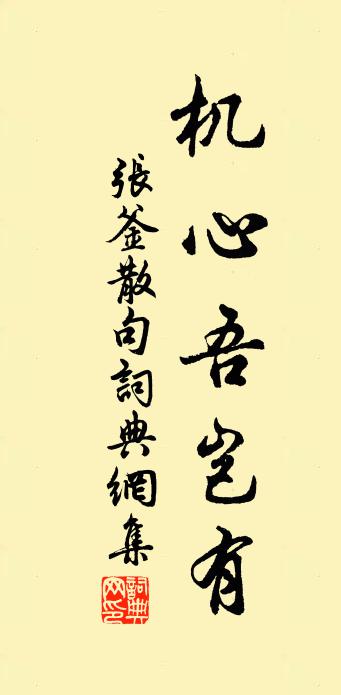 机心吾岂有
張釜散句詞典網集
詞典網印